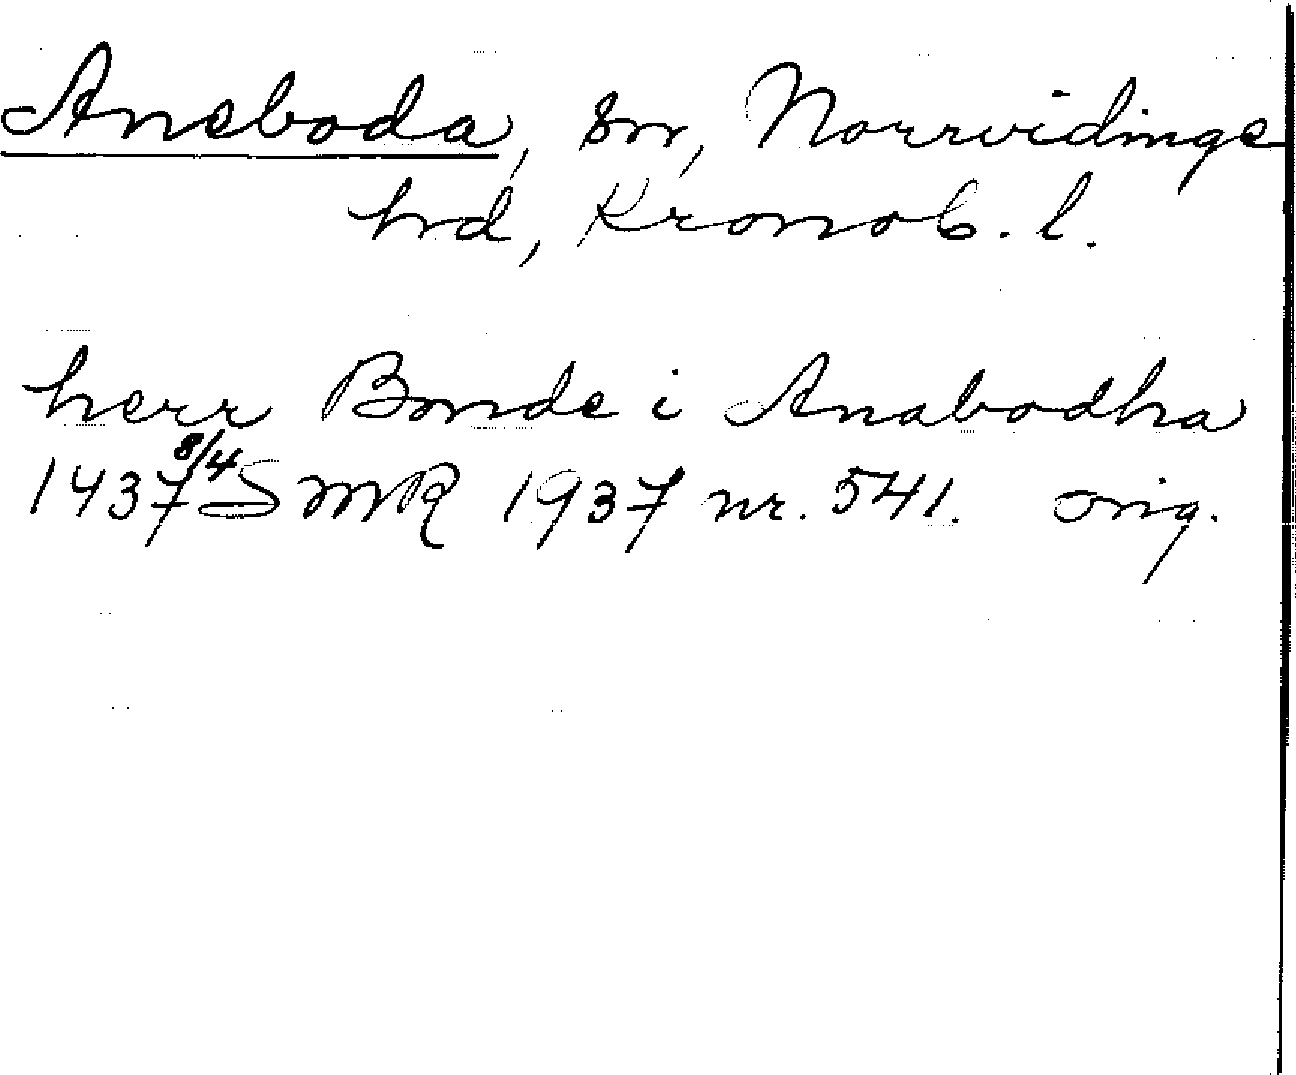 Aneboda, sn, Norrvidinge
hrd, Kronob. l.
herr Bonde i Anabodha
1437 8/4 SMR 1937 nr. 541. orig.